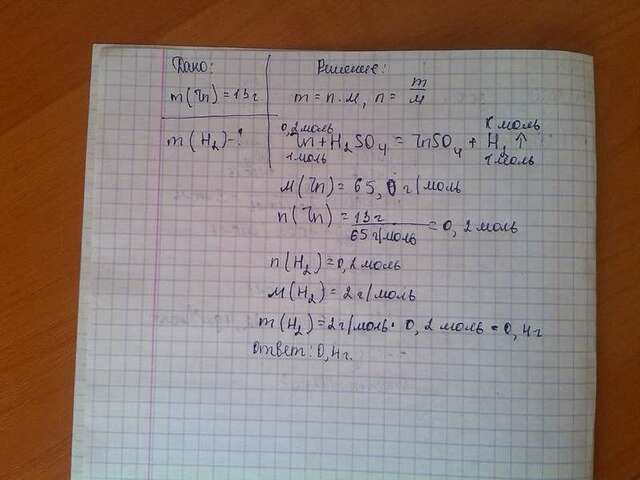 Дано:
m(Zn) = 13 г
m(H₂) - ?
Решение:
m = n · м, n = m/м
0,2 моль x моль
Zn + H₂SO₄ = ZnSO₄ + H₂ ↑
1 моль 1 моль
м(Zn) = 65,0 г/моль
n(Zn) = 13 г / 65 г/моль = 0,2 моль
n(H₂) = 0,2 моль
м(H₂) = 2 г/моль
m(H₂) = 2 г/моль · 0,2 моль = 0,4 г
ответ: 0,4 г.